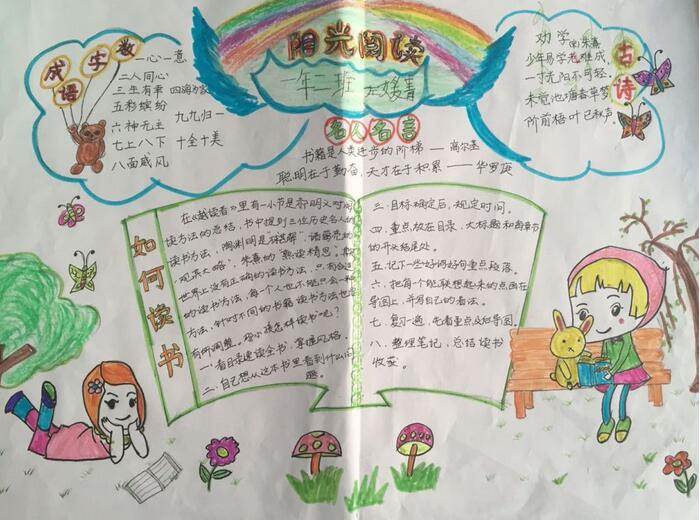 阳光阅读
一年二班
成语字数
一心一意
二人同心
三生有幸 四海为家
五彩缤纷
六神无主 九九归一
七上八下 十全十美
八面威风
古诗
劝学 朱熹
少年易学老难成,
一寸光阴不可轻。
未觉池塘春草梦
阶前梧叶已秋声。
名人名言
书籍是人类进步的阶梯 — 高尔基
聪明在于勤奋,天才在于积累 —— 华罗庚
如何读书
在《越读者》里有一小节是郝明义对
读方法的总结,书中提到三位历史名人的
读书方法,陶渊明是"不求甚解",诸葛亮的
"观其大略",朱熹的"熟读精思"。
世界上没有正确的读书方法,只有
的读书方法,每个人也不能只会一种
方法,针对不同的书籍读书方法也
有所调整。 怎样读书呢?
一.看目录速读全书,掌握风格。
二.自己想从这本书里看到什么问
题。
三.目标确定后,规定时间。
四.重点放在目录、大标题和每章节
的开头结尾处。
五.记下一些好词好句重点段落。
六.把每个能联想起来的点画在
导图上,并写自己的看法。
七.复习一遍,先看重点及如导图。
八.整理笔记,总结读书
收获。